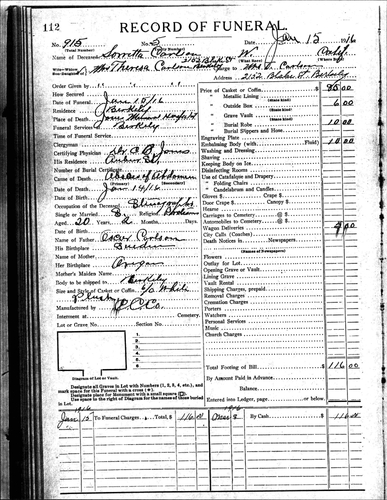 112
RECORD OF FUNERAL
Jan 15 1916
No. 915 5
(Total Number) (Number)
Name of Deceased Carlson W. Calif
2152 Blake St (What Race)
Mrs Theresa Carlson Berkeley Mrs T. Carlson
Address 2152 Blake St. Berkeley
Order Given
How Secured
Date of Funeral Jan 15/16
Place of Death
Funeral Services Berkeley
Time of Service
Clergyman
Certifying Physician Dr C. B. Jones
His Residence
Number of Burial Certificate
Cause of Death Abscess of Abdomen
Date of Death Jan 14/16
Occupation of the Deceased Stenographer
Single or Married S. Religion
Aged 20 Years, 6 Months, Days
Date of Birth
Name of Father Oscar Carlson
His Birthplace Sweden
Name of Mother
Her Birthplace Oregon
Mother's Maiden Name
Body to be shipped to Berkeley
Size and Style of Casket or Coffin 6/0 White
Plush
Manufactured by P.C.Co.
Interment at Cemetery.
Lot or Grave No. Section No.
Diagram of Lot or Vault.
Designate all Graves in Lot with Numbers (1, 2, 3, 4, etc.), and
mark space for this Funeral with a cross
Designate place for Monument with a small square
Use space to the right of Diagram for the names of those buried
in Lot.
Price of Casket or Coffin $ 90 00
" Metallic Lining
(State kind)
" Outside Box 6 00
(State kind)
" Grave Vault
(State kind)
" Burial Robe 10 00
" Burial Slippers and Hose
Engraving Plate
Embalming Body (with Fluid) 10 00
Washing and Dressing
Shaving
Keeping Body on Ice
Disinfecting Rooms
Use of Catafalque and Drapery
" Folding Chairs
" Candelabrum and Candles
Gloves $ Crape $
Door Crape $ Canopy $
Hearse
Carriages to Cemetery @ $
Automobiles to Cemetery @ $
Wagon Deliveries 00
City Calls (Coaches)
Death Notices in Newspapers
(Names of Newspapers)
Flowers
Outlay for Lot
Opening Grave or Vault
Lining Grave
Vault Rental
Shipping Charges, prepaid
Removal Charges
Cremation Charges
Porters
Watchers
Personal Services
Music
Church Charges
Total Footing of Bill $ 116 00
By Amount Paid in Advance
Balance
Entered into Ledger, page or below.
1916 1916
Jan 15 To Funeral Charges Total, $ 116 00 By Cash $ 116 00